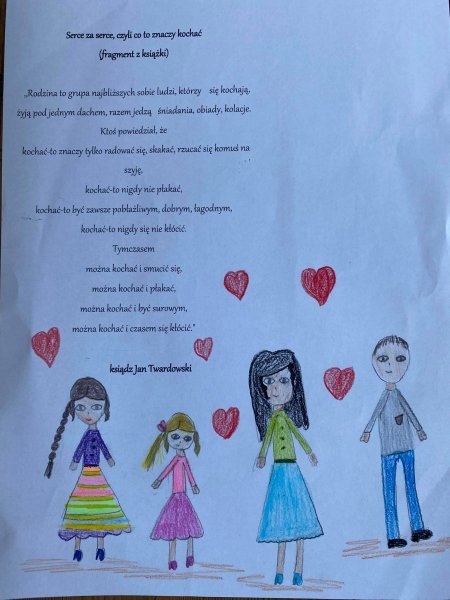 Serce za serce, czyli co to znaczy kochać
(fragment z książki)
„Rodzina to grupa najbliższych sobie ludzi, którzy się kochają,
żyją pod jednym dachem, razem jedzą śniadania, obiady, kolacje.
Ktoś powiedział, że
kochać-to znaczy tylko radować się, skakać, rzucać się komuś na
szyję,
kochać-to nigdy nie płakać,
kochać-to być zawsze pobłażliwym, dobrym, łagodnym,
kochać-to nigdy się nie kłócić.
Tymczasem
można kochać i smucić się,
można kochać i płakać,
można kochać i być surowym,
można kochać i czasem się kłócić."
ksiądz Jan Twardowski